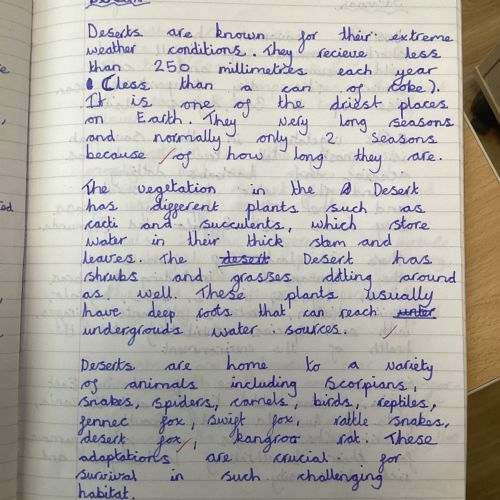 Deserts are known for their extreme
weather conditions. They recieve less
than 250 millimetres each year
(less than a can of coke).
It is one of the driest places
on Earth. They very long seasons
and normally only 2 seasons
because of how long they are.
The vegetation in the Desert
has different plants such as
cacti and succulents, which store
water in their thick stem and
leaves. The desert Desert has
shrubs and grasses dotting around
as well. These plants usually
have deep roots that can reach unter
undergrounds water sources.
Deserts are home to a variety
of animals including scorpians,
snakes, spiders, camels, birds, reptiles,
fennec fox, swift fox, rattle snakes,
desert fox, kangroo rat. These
adaptations are crucial for
survival in such challenging
habitat.